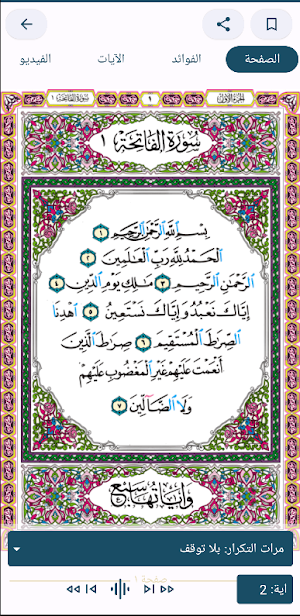 الصفحة
الفوائد
الآيات
الفيديو
سورة الفاتحة ١
١
الجزء الأول
سُورَةُ الفَاتِحَةِ ١
بِسْمِ ٱللَّهِ ٱلرَّحْمَٰنِ ٱلرَّحِيمِ ١
ٱلْحَمْدُ لِلَّهِ رَبِّ ٱلْعَٰلَمِينَ ٢
ٱلرَّحْمَٰنِ ٱلرَّحِيمِ ٣ مَٰلِكِ يَوْمِ ٱلدِّينِ ٤
إِيَّاكَ نَعْبُدُ وَإِيَّاكَ نَسْتَعِينُ ٥ ٱهْدِنَا
ٱلصِّرَٰطَ ٱلْمُسْتَقِيمَ ٦ صِرَٰطَ ٱلَّذِينَ
أَنْعَمْتَ عَلَيْهِمْ غَيْرِ ٱلْمَغْضُوبِ عَلَيْهِمْ
وَلَا ٱلضَّآلِّينَ ٧
وَآيَاتُهَا سَبْعٌ
مرات التكرار: بلا توقف
صفحة ١
آية: 2